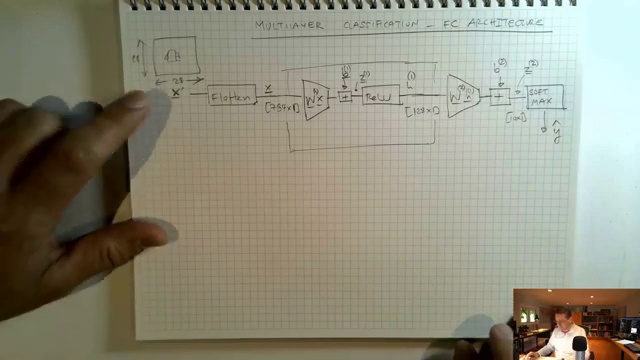 MULTILAYER CLASSIFICATION - FC ARCHITECTURE
28
28
x
Flatten
x
[784x1]
W(1) x
b(1)
+
z(1)
ReLU
h(1)
[128x1]
W(2) h(1)
b(2)
+
[10x1]
z(2)
SOFT
MAX
ŷ